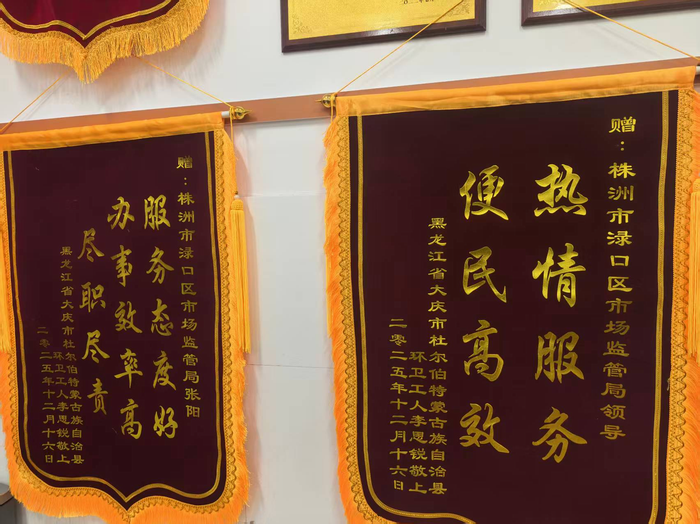 赠：株洲市渌口区市场监管局张阳
服务态度好
办事效率高
尽职尽责
黑龙江省大庆市杜尔伯特蒙古族自治县
环卫工人李恩锐敬上
二零二五年十二月十六日
赠：株洲市渌口区市场监管局领导
热情服务
便民高效
黑龙江省大庆市杜尔伯特蒙古族自治县
环卫工人李恩锐敬上
二零二五年十二月十六日